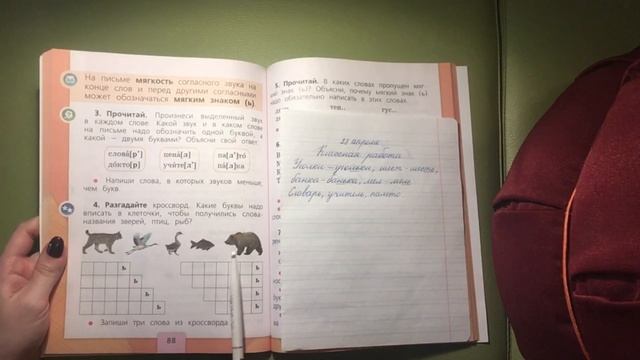 На письме мягкость согласного звука на
конце слов и перед другими согласными
может обозначаться мягким знаком (ь).
3. Прочитай. Произнеси выделенный звук
в каждом слове. Какой звук и в каком слове
на письме надо обозначить одной буквой, а
какой — двумя буквами? Объясни свой ответ.
слова́[р'] пена́[л] па[л'то́]
до́кто[р] учи́те[л'] па́[л]ка
• Напиши слова, в которых звуков меньше,
чем букв.
4. Разгадайте кроссворд. Какие буквы надо
вписать в клеточки, чтобы получились слова-
названия зверей, птиц, рыб?
ь ь
ь ь
ь ь
ь ь
• Запиши три слова из кроссворда
88
5. Прочитай. В каких словах пропущен мяг-
кий знак (ь)? Объясни, почему мягкий знак (ь)
надо обязательно написать в этих словах.
тев.. гус..
6.
7.
23 апреля
Классная работа
Уголки – угольки, шест – шесть,
банка – банька, мел – мель
Словарь, учитель, пальто